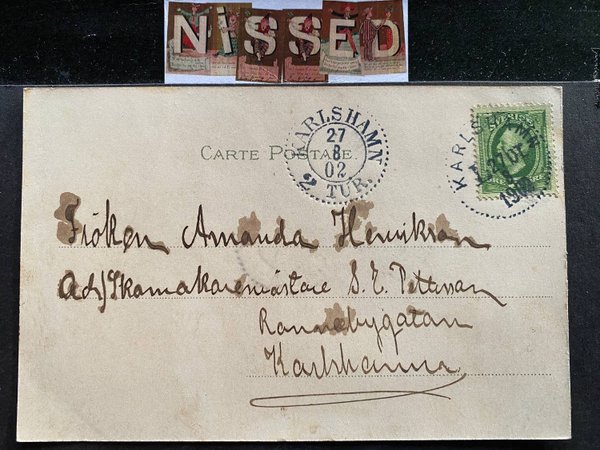 NISSED
CARTE POSTALE.
KARLSHAMN
27
8
02
2 TUR.
KARLSHAMN
Fröken Amanda Henrikson
Ad/Skomakaremästare S. E. Pettersson
Ronnebygatan
Karlshamn